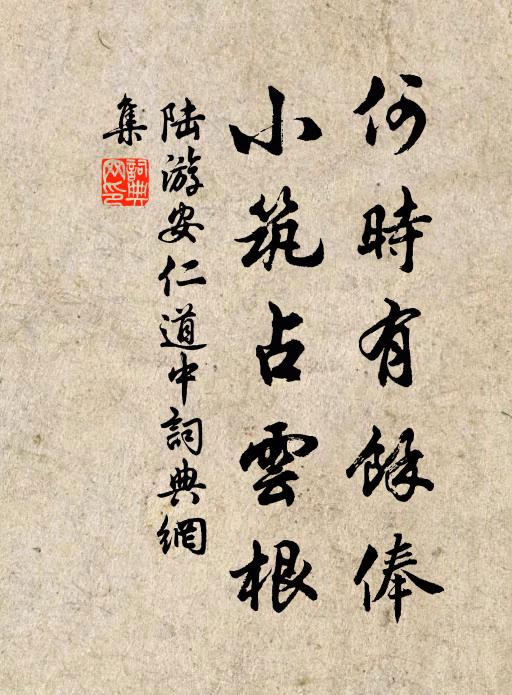 何時有餘俸
小筑占雲根
陆游安仁道中詞典網
集
詞典
网印